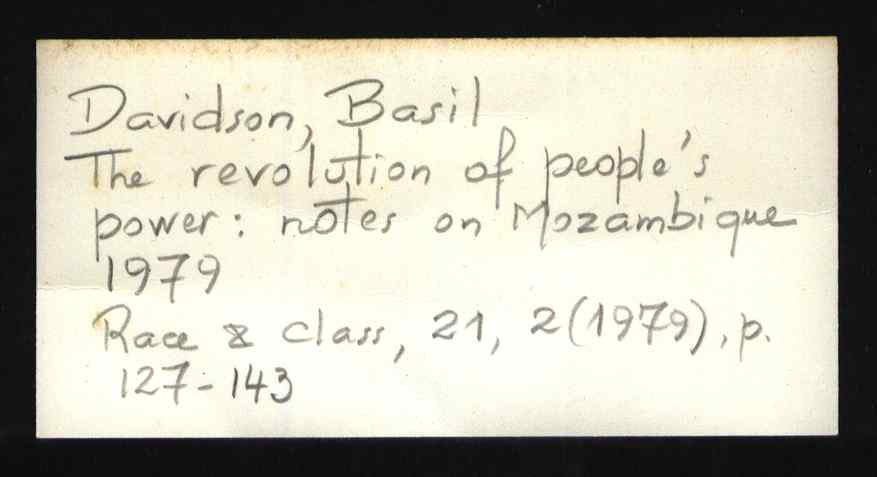 Davidson, Basil
The revolution of people's
power: notes on Mozambique
1979
Race & class, 21, 2(1979), p.
127-143